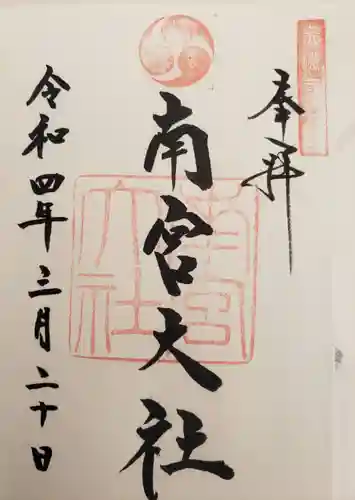 奉拝
南宮大社
南宮大社
令和四年三月二十日